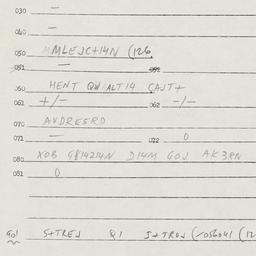 030 —
040 —
050 MMLEJC+14N (126
051 — 052
060 HENT QW ALT14 CAJT+
061 +/- 062 -/-
070 AVDRESRD
071 — 072 0
080 XOB G814214N D14M GOJ AK3RN
081 0
901 S+TREJ Q1 S+TROJ (/056041 (12